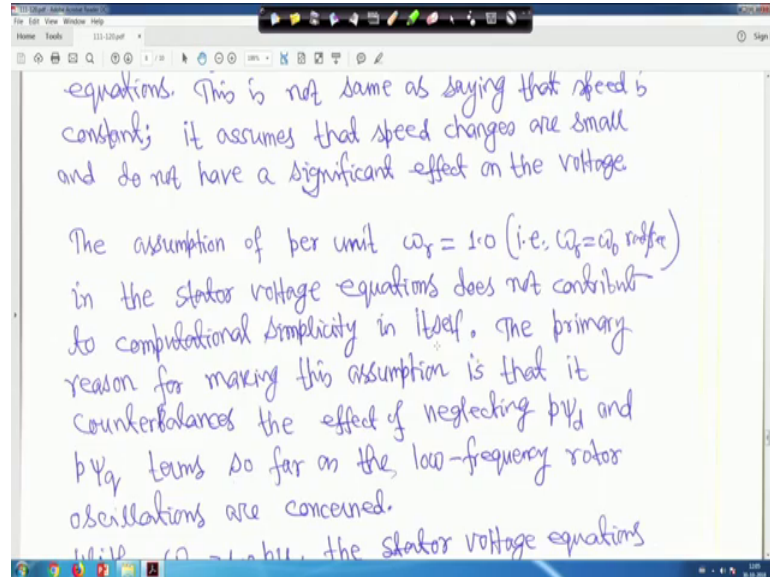 111-120.pdf - Adobe Acrobat Reader DC
File Edit View Window Help
Home Tools 111-120.pdf × Sign
equations. This is not same as saying that speed is
constant; it assumes that speed changes are small
and do not have a significant effect on the voltage.
The assumption of per unit ωr = 1.0 (i.e., ωr = ω0 rad/sec)
in the stator voltage equations does not contribut
to computational simplicity in itself. The primary
reason for making this assumption is that it
counterbalances the effect of neglecting pψd and
pψq terms so far as the low-frequency rotor
oscillations are concerned.
With the stator voltage equations